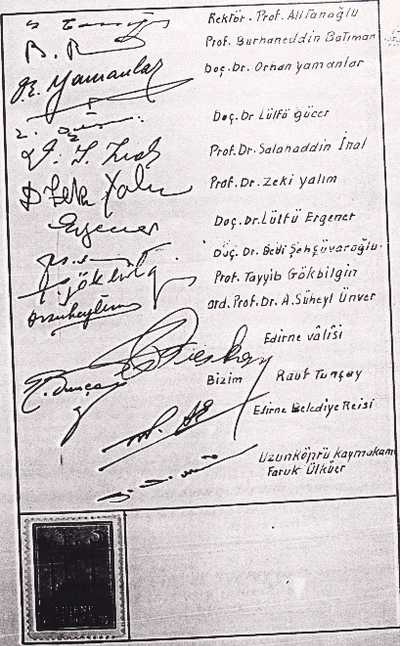 Rektör. Prof. Ali Tanoğlu
B. B
Prof. Burhaneddin Batıman
O. Yamanlar
Doç. Dr. Orhan Yamanlar
Doç. Dr. Lütfü Gücer
Prof. Dr. Salahaddin İnal
Dr Zeki Yalım
Prof. Dr. Zeki yalım
Ergener
Doç. Dr. Lütfü Ergener
Doç. Dr. Bedi Şehsüvaroğlu.
Gökbilg
Prof. Tayyib Gökbilgin
Ord. Prof. Dr. A. Süheyl Ünver
Edirne vâlisi
Bizim Rauf Tunçay
Edirne Belediye Reisi
Uzunköprü kaymakam
Faruk Ülküer
EDİRNE